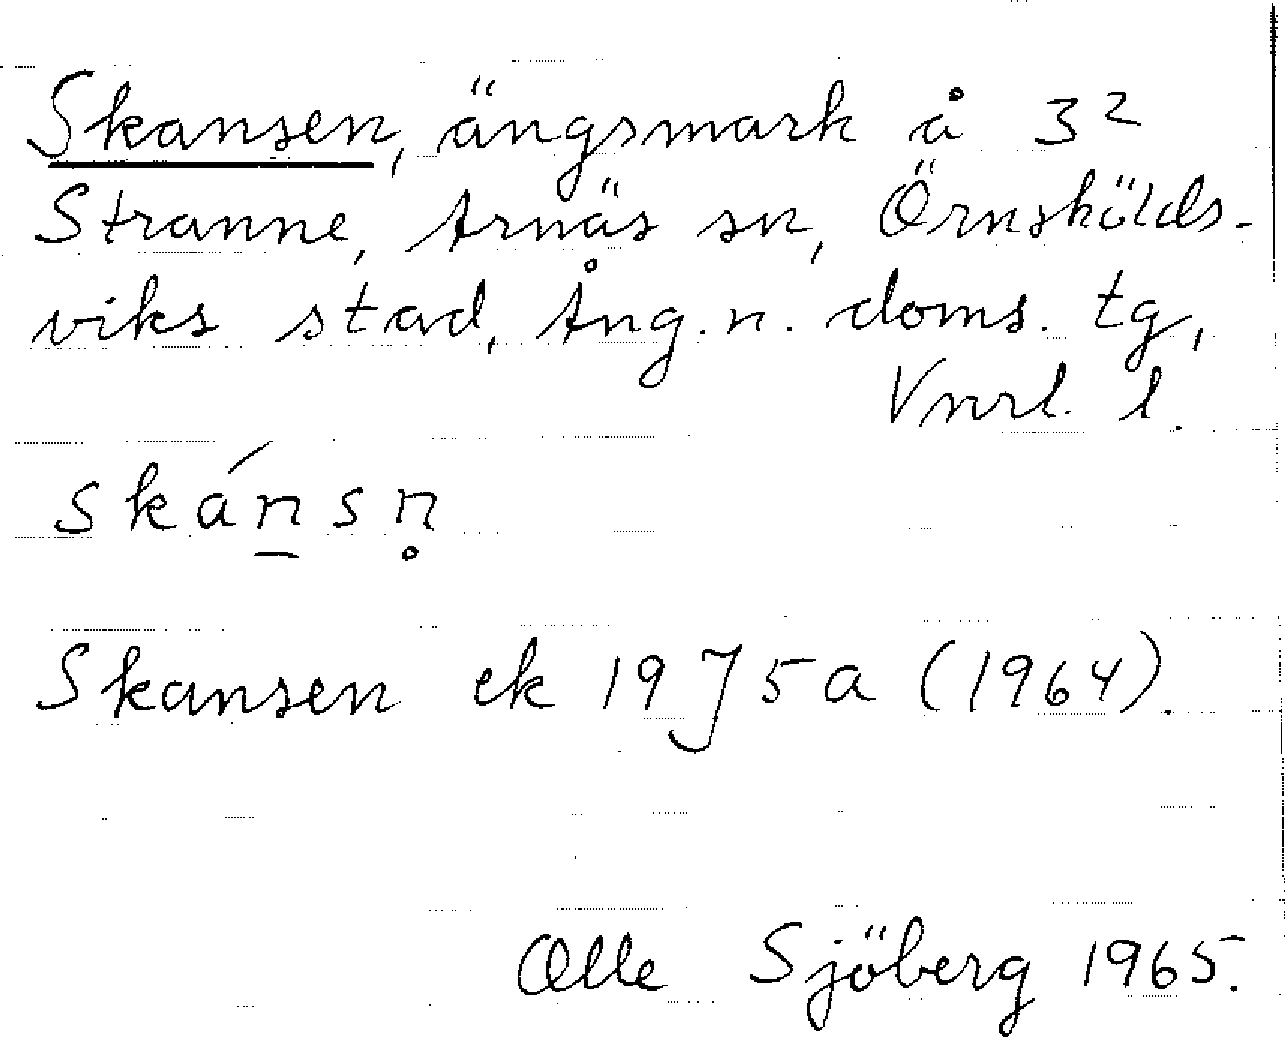 Skansen, ängsmark å 3²
Stranne, Arnäs sn, Örnskölds-
viks stad, Ång. n. doms. tg,
Vnrl. l.
skánsn̥
Skansen ek 19J5a (1964).
Olle Sjöberg 1965.